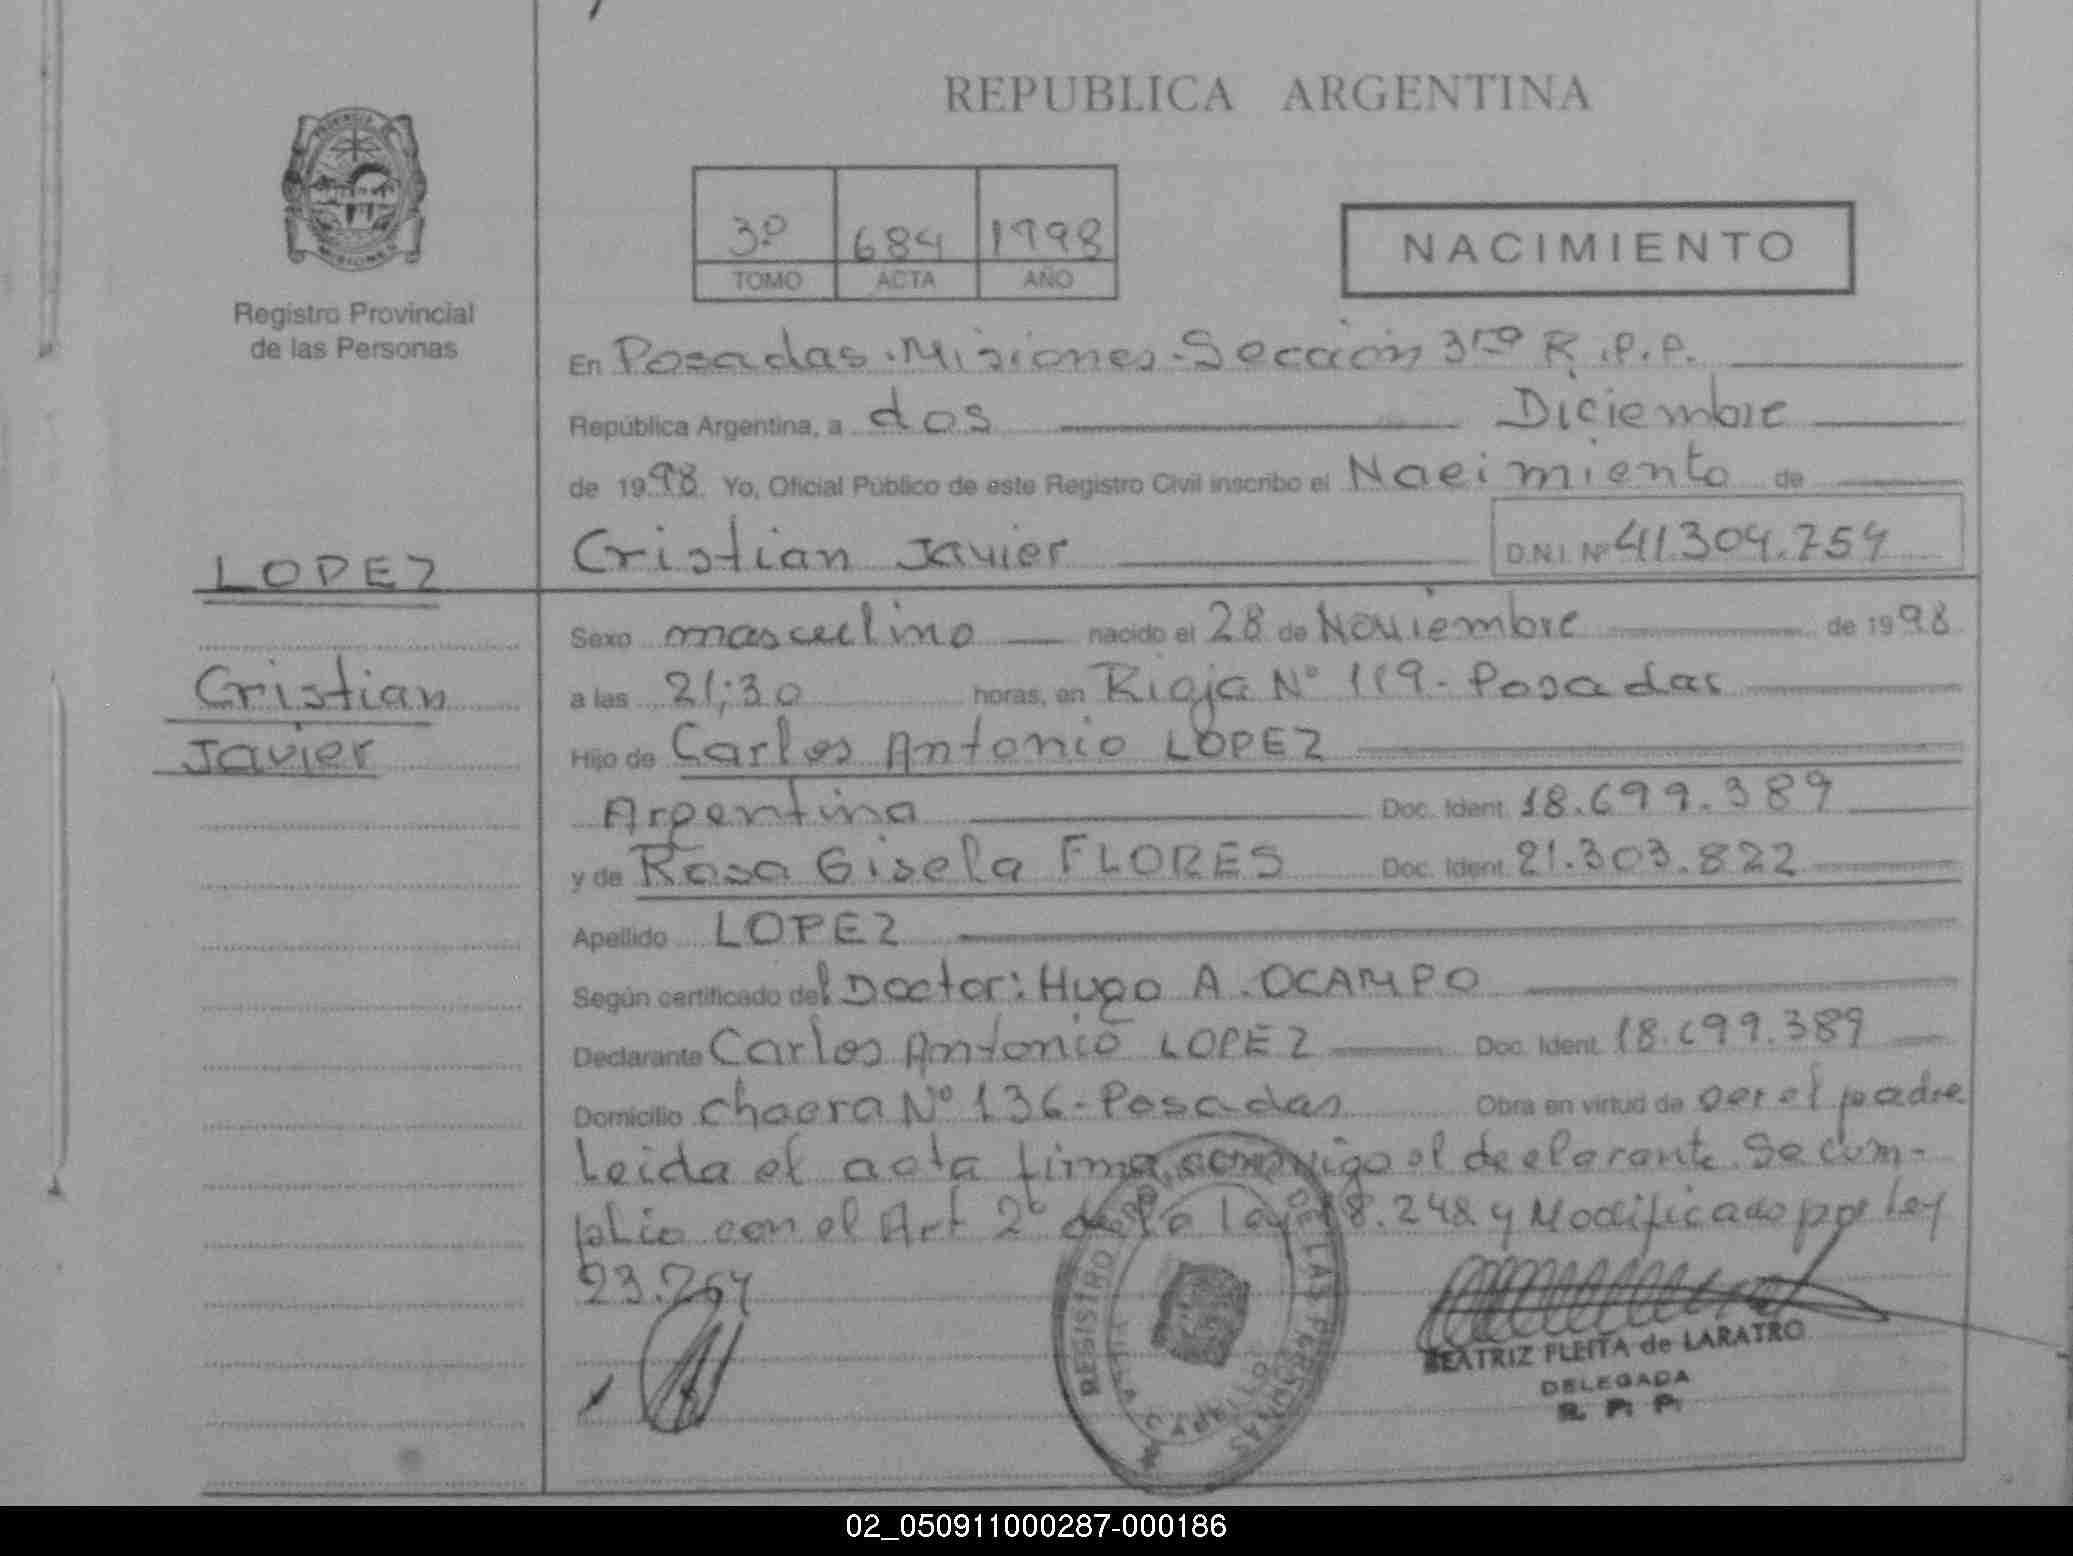 REPUBLICA ARGENTINA
3º 684 1998
TOMO ACTA AÑO
NACIMIENTO
MISIONES
Registro Provincial
de las Personas
En Posadas.Misiones.Sección 3ra R.P.P.
República Argentina, a dos Diciembre
de 1998 Yo, Oficial Público de este Registro Civil inscribo el Nacimiento de
Cristian Javier D.N.I. Nº 41.304.754
LOPEZ
Cristian
Javier
Sexo masculino nacido el 28 de Noviembre de 1998
a las 21:30 horas, en Rioja Nº 119-Posadas
Hijo de Carlos Antonio LOPEZ
Argentina Doc. Ident. 18.699.389
y de Rosa Gisela FLORES Doc. Ident. 21.303.822
Apellido LOPEZ
Según certificado del Doctor: Hugo A. OCAMPO
Declarante Carlos Antonio LOPEZ Doc. Ident. 18.699.389
Domicilio chacra Nº 136-Posadas Obra en virtud de ser el padre
Leida el acta firma conmigo el declarante. Se cum-
plio con el Art 2º de la ley 18.248 y Modificado por ley
23.264
REGISTRO DE LAS PERSONAS
BEATRIZ FLEITA de LARATRO
DELEGADA
R. P. P.
02_050911000287-000186